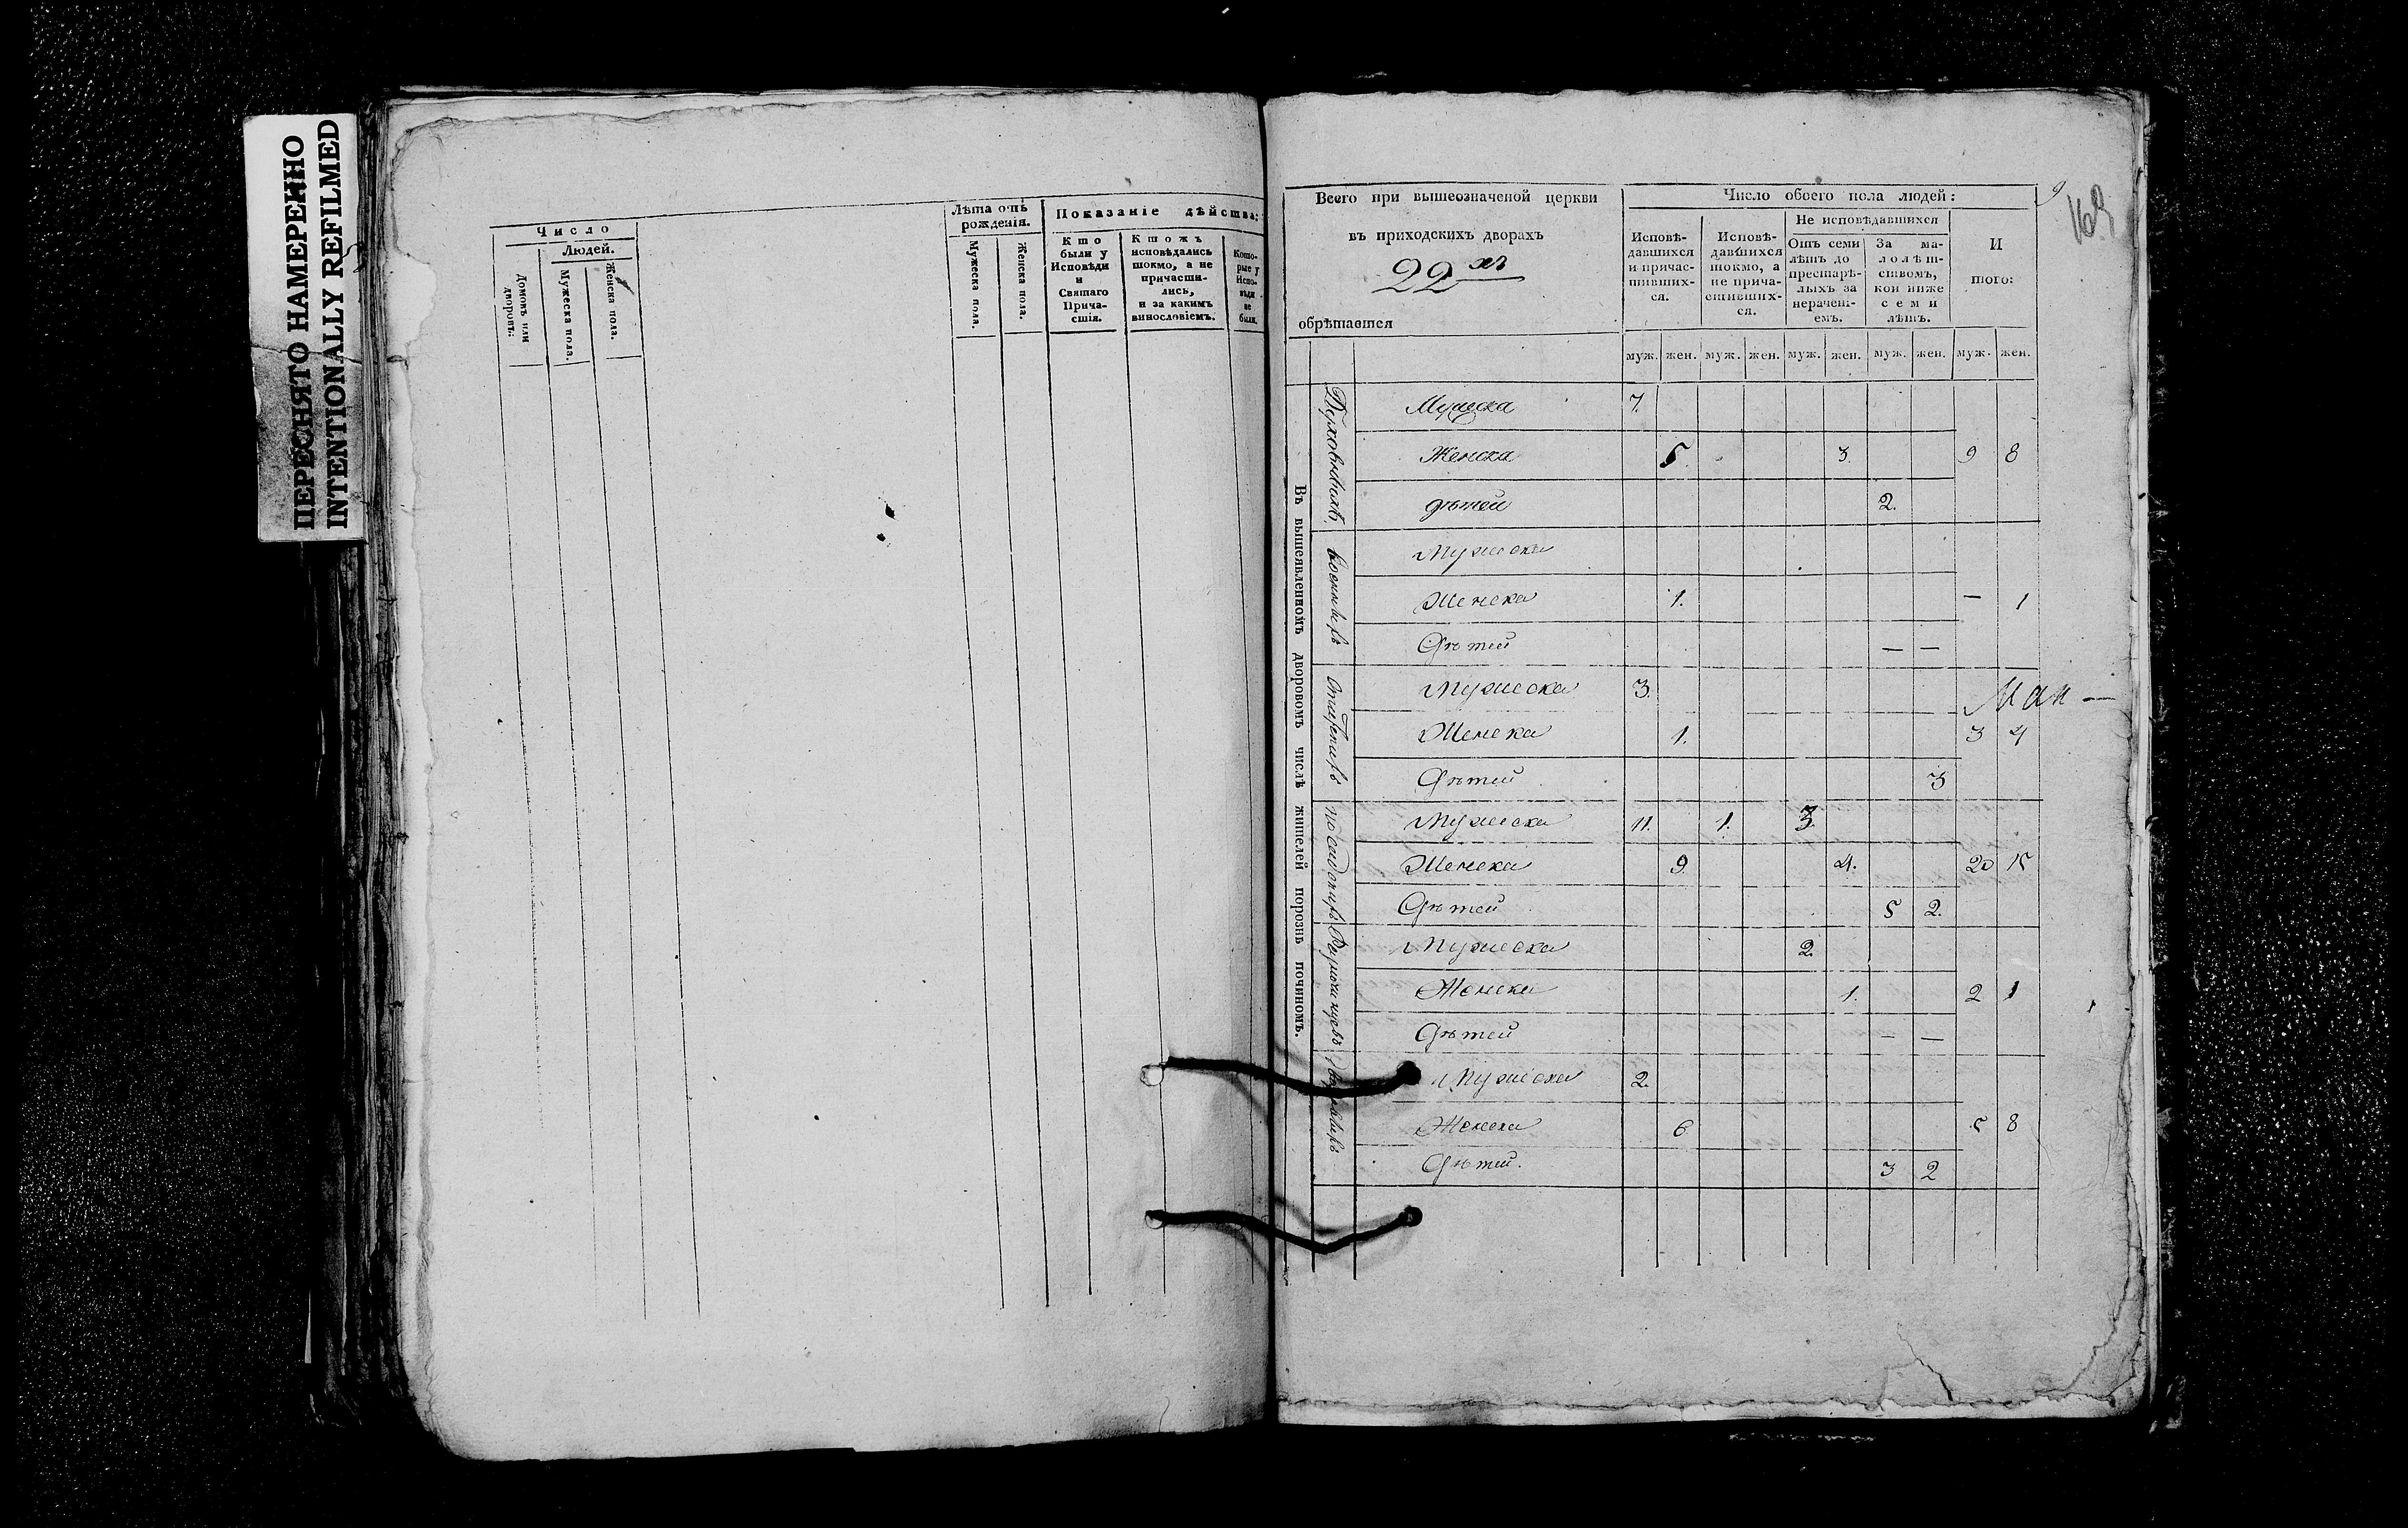 ПЕРЕСНЯТО НАМЕРЕННО
INTENTIONALLY REFILMED
Число
Людей.
Домовъ или дворовъ:
Мужеска пола.
Женска пола.
Лѣта отъ рожденія.
Мужеска пола.
Женска пола.
Показаніе дѣйства:
Кто были у Исповѣди и Святаго Причастія.
Ктожъ исповѣдались токмо, а не причастились, и за какимъ винословіемъ.
Которые у Исповѣди не были.
Всего при вышеозначеной церкви
въ приходскихъ дворахъ
22хъ
обрѣтается
Число обоего пола людей:
Исповѣдавшихся и причастившихся.
Исповѣдавшихся токмо, а не причастившихся.
Не исповѣдавшихся
Отъ семи лѣтъ до престарѣлыхъ за нераченіемъ.
За малолѣтствомъ, кои ниже семи лѣтъ.
И того:
муж. жен. муж. жен. муж. жен. муж. жен. муж. жен.
Въ вышеявленномъ дворовомъ числѣ жителей порознь починомъ.
Духовныхъ
Мужеска 7.
Женска 5. 3. 9 8
дѣтей 2.
военныхъ
Мужеска
Женска 1. — 1
Дѣтей — —
Мужеска 3.
Женска 1. 3 4
Дѣтей 3
посадскихъ
Мужеска 11. 1. 3.
Женска 9. 4. 20 15
Дѣтей 5 2.
Мужеска 2.
Женска 1. 2 1
Дѣтей — —
Мужеска 2.
Женска 6 5 8
Дѣтей. 3 2